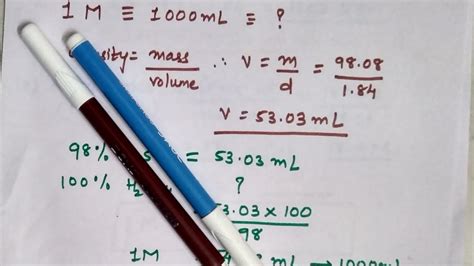 1 M ≡ 1000mL ≡ ?
sity= mass/volume ∴ V = m/d = 98.08/1.84
V = 53.03 mL
98% S = 53.03 mL
100% H2 ?
3.03 x 100/98
1M mL → 1000ml